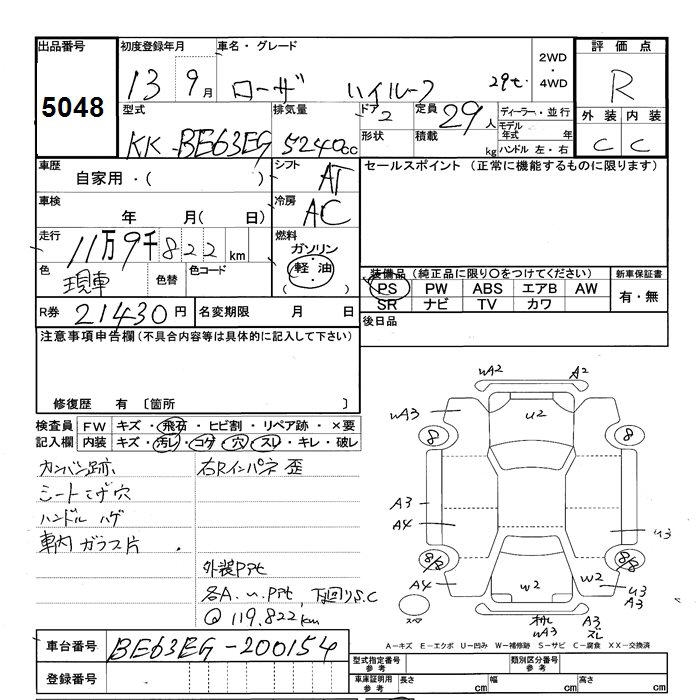 出品番号
5048
初度登録年月
13 9月
車名・グレード
ローザ ハイルーフ 29t
2WD・4WD
評価点
R
外装 内装
C C
型式
KK-BE63EG
排気量
5240cc
ドア
2
形状
定員 29人
積載 kg
ディーラー・並行
モデル年式 年
ハンドル 左・右
車歴
自家用・( )
シフト
AT
車検
年 月( 日)
冷房
AC
走行
11万9千822km
燃料
ガソリン
軽油
色
現車
色替
色コード
R券 21430円
名変期限 月 日
セールスポイント (正常に機能するものに限ります)
装備品 (純正品に限り○をつけてください)
PS PW ABS エアB AW
SR ナビ TV カワ
新車保証書
有・無
後日品
注意事項申告欄(不具合内容等は具体的に記入して下さい)
修復歴 有 〔箇所
検査員記入欄
FW キズ・飛石・ヒビ割・リペア跡・×要
内装 キズ・汚レ・コゲ・穴・スレ・キレ・破レ
カンバン跡
シートこげ穴
ハンドル ハゲ
車内 ガラス片
右Rインパネ 歪
外装PPt
各A.u.PPt, 下回りS.C
@119.822km
uA2
A2
uA3
u2
8
8
A3
A4
u3
8/8
8/8
A4
w2
w2
u3
A3
スペア
uA3
A3
ズレ
A-キズ E-エクボ U-凹み W-補修跡 S-サビ C-腐食 XX-交換済
車台番号 BE63EG-200154
登録番号
型式指定番号 参考
類別区分番号 参考
車庫証明用 参考
長さ cm
幅 cm
高さ cm